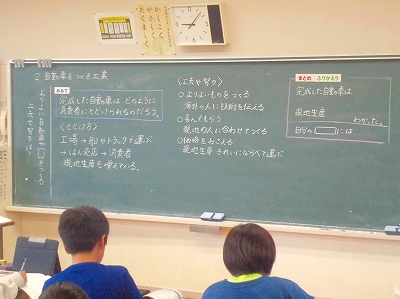 かしこく
やさしく
たくましく
2 自動車をつくる工業
よりよい自動車をつくる
工夫や努力は
めあて
完成した自動車は どのように
消費者にとどけられるのだろう。
〈とどけ方〉
工場→船やトラックで運ぶ
→はん売店→消費者
現地生産も増えている。
〈工夫や努力〉
○よりよいものをつくる
海外の人に技術を伝える
現地の人に合わせてつくる
○価格をおさえる
現地生産 きれいにならべて運ぶ
まとめ ふりかえり
完成した自動車は
現地生産
わかった。
自分の には